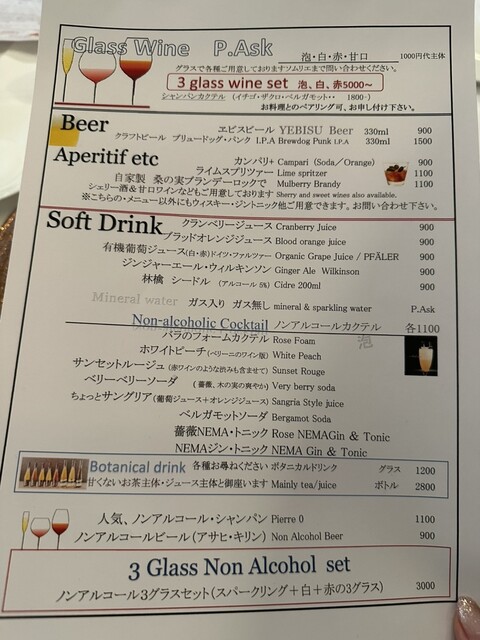 Glass Wine P.Ask 泡・白・赤・甘口 1000円代主体
グラスで各種ご用意しておりますソムリエまで問い合わせください。
3 glass wine set 泡、白、赤5000～
シャンパンカクテル (イチゴ・ザクロ・ベルガモット・・ 1800-)
お料理とのペアリング可、お申し付け下さい。
Beer
ヱビスビール YEBISU Beer 330ml 900
クラフトビール ブリュードッグ・パンク I.P.A Brewdog Punk I.P.A 330ml 1500
Aperitif etc
カンパリ+ Campari (Soda／Orange) 900
ライムスプリツァー Lime spritzer 1100
自家製 桑の実ブランデーロックで Mulberry Brandy 1100
シェリー酒＆甘口ワインなどもご用意しております Sherry and sweet wines also available.
※こちらの・メニュー以外にもウィスキー・ジントニック他ご用意できます。お問い合わせ下さい。
Soft Drink
クランベリージュース Cranberry Juice 900
ブラッドオレンジジュース Blood orange juice 900
有機葡萄ジュース(白・赤)ドイツ・ファルツァー Organic Grape Juice / PFÄLER 900
ジンジャーエール・ウィルキンソン Ginger Ale Wilkinson 900
林檎 シードル (アルコール 5%) Cidre 200ml 900
Mineral water ガス入り ガス無し mineral & sparkling water P.Ask
Non-alcoholic Cocktail ノンアルコールカクテル 各1100
バラのフォームカクテル Rose Foam 泡
ホワイトピーチ(ベリーニのワイン版) White Peach
サンセットルージュ (赤ワインのような渋みも含ませて) Sunset Rouge
ベリーベリーソーダ (薔薇、木の実の爽やか) Very berry soda
ちょっとサングリア(葡萄ジュース＋オレンジジュース) Sangria Style juice
ベルガモットソーダ Bergamot Soda
薔薇NEMA・トニック Rose NEMAGin & Tonic
NEMAジン・トニック NEMA Gin & Tonic
Botanical drink 各種お尋ねください ボタニカルドリンク グラス 1200
甘くないお茶主体・ジュース主体と御座います Mainly tea/juice ボトル 2800
人気、ノンアルコール・シャンパン Pierre 0 1100
ノンアルコールビール(アサヒ・キリン) Non Alcohol Beer 900
3 Glass Non Alcohol set
ノンアルコール3グラスセット(スパークリング＋白＋赤の3グラス) 3000